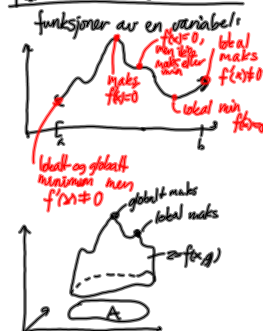 funksjoner av en variabel:
f'(x)=0,
men ikke
maks eller
min
lokal
maks
f'(x)≠0
maks
f'(x)=0
lokal min
f'(x)=0
a
b
lokalt og globalt
minimum men
f'(x)≠0
globalt maks
lokal maks
z=f(x,y)
A